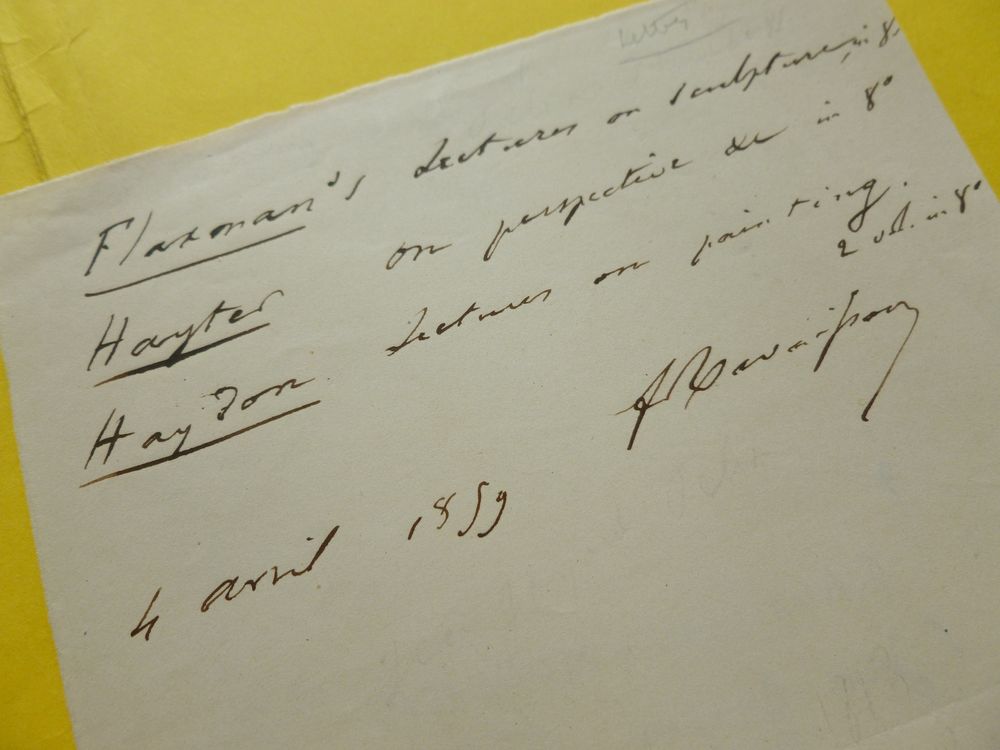 Letter
Flaxman's Lectures on sculpture, in 8°
Hayter on perspective &c in 8°
Haydon Lectures on painting.
2 vol. in 8°
F Ravaisson
4 avril 1859